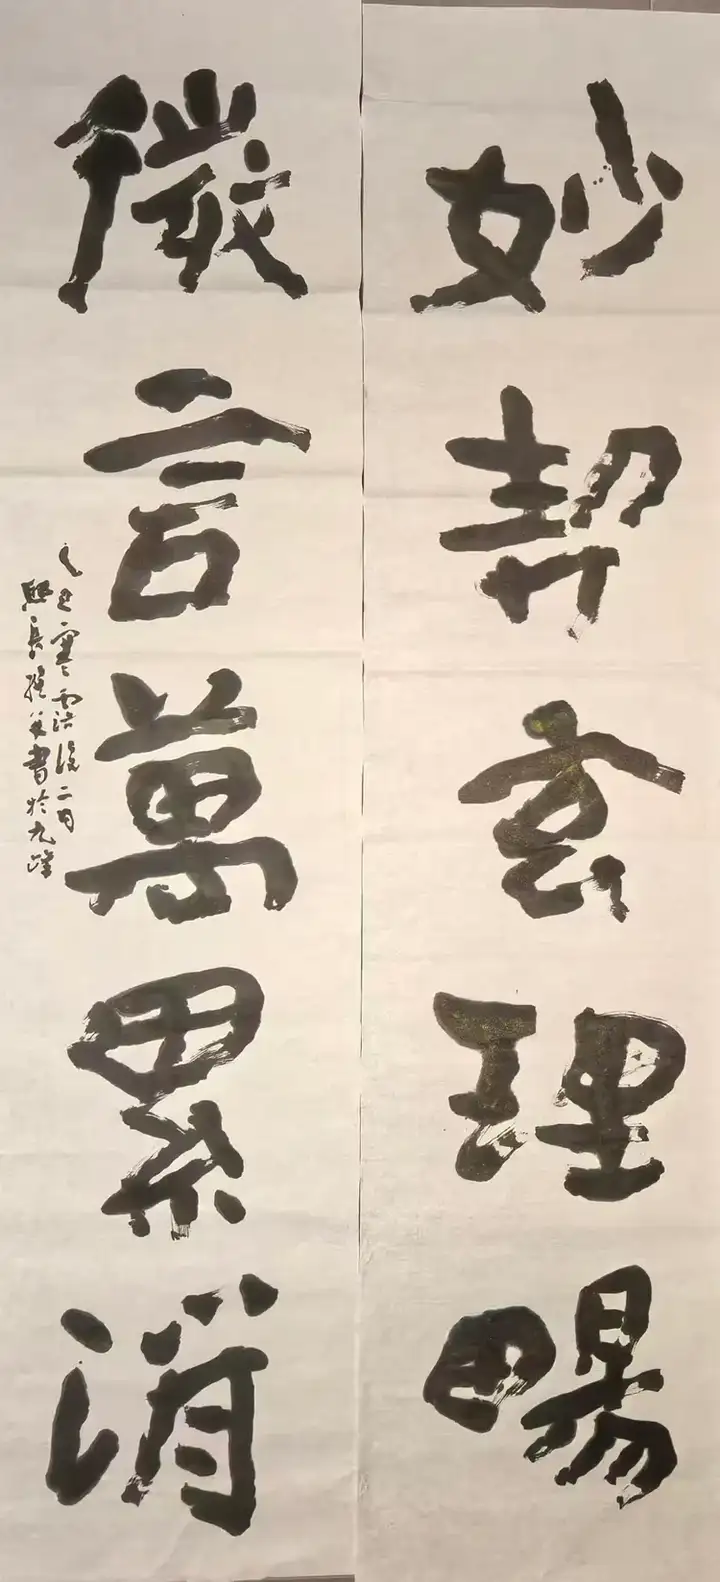 妙契玄理暢
微言萬累消
乙巳寒露後二日
熙長張英書於九峰